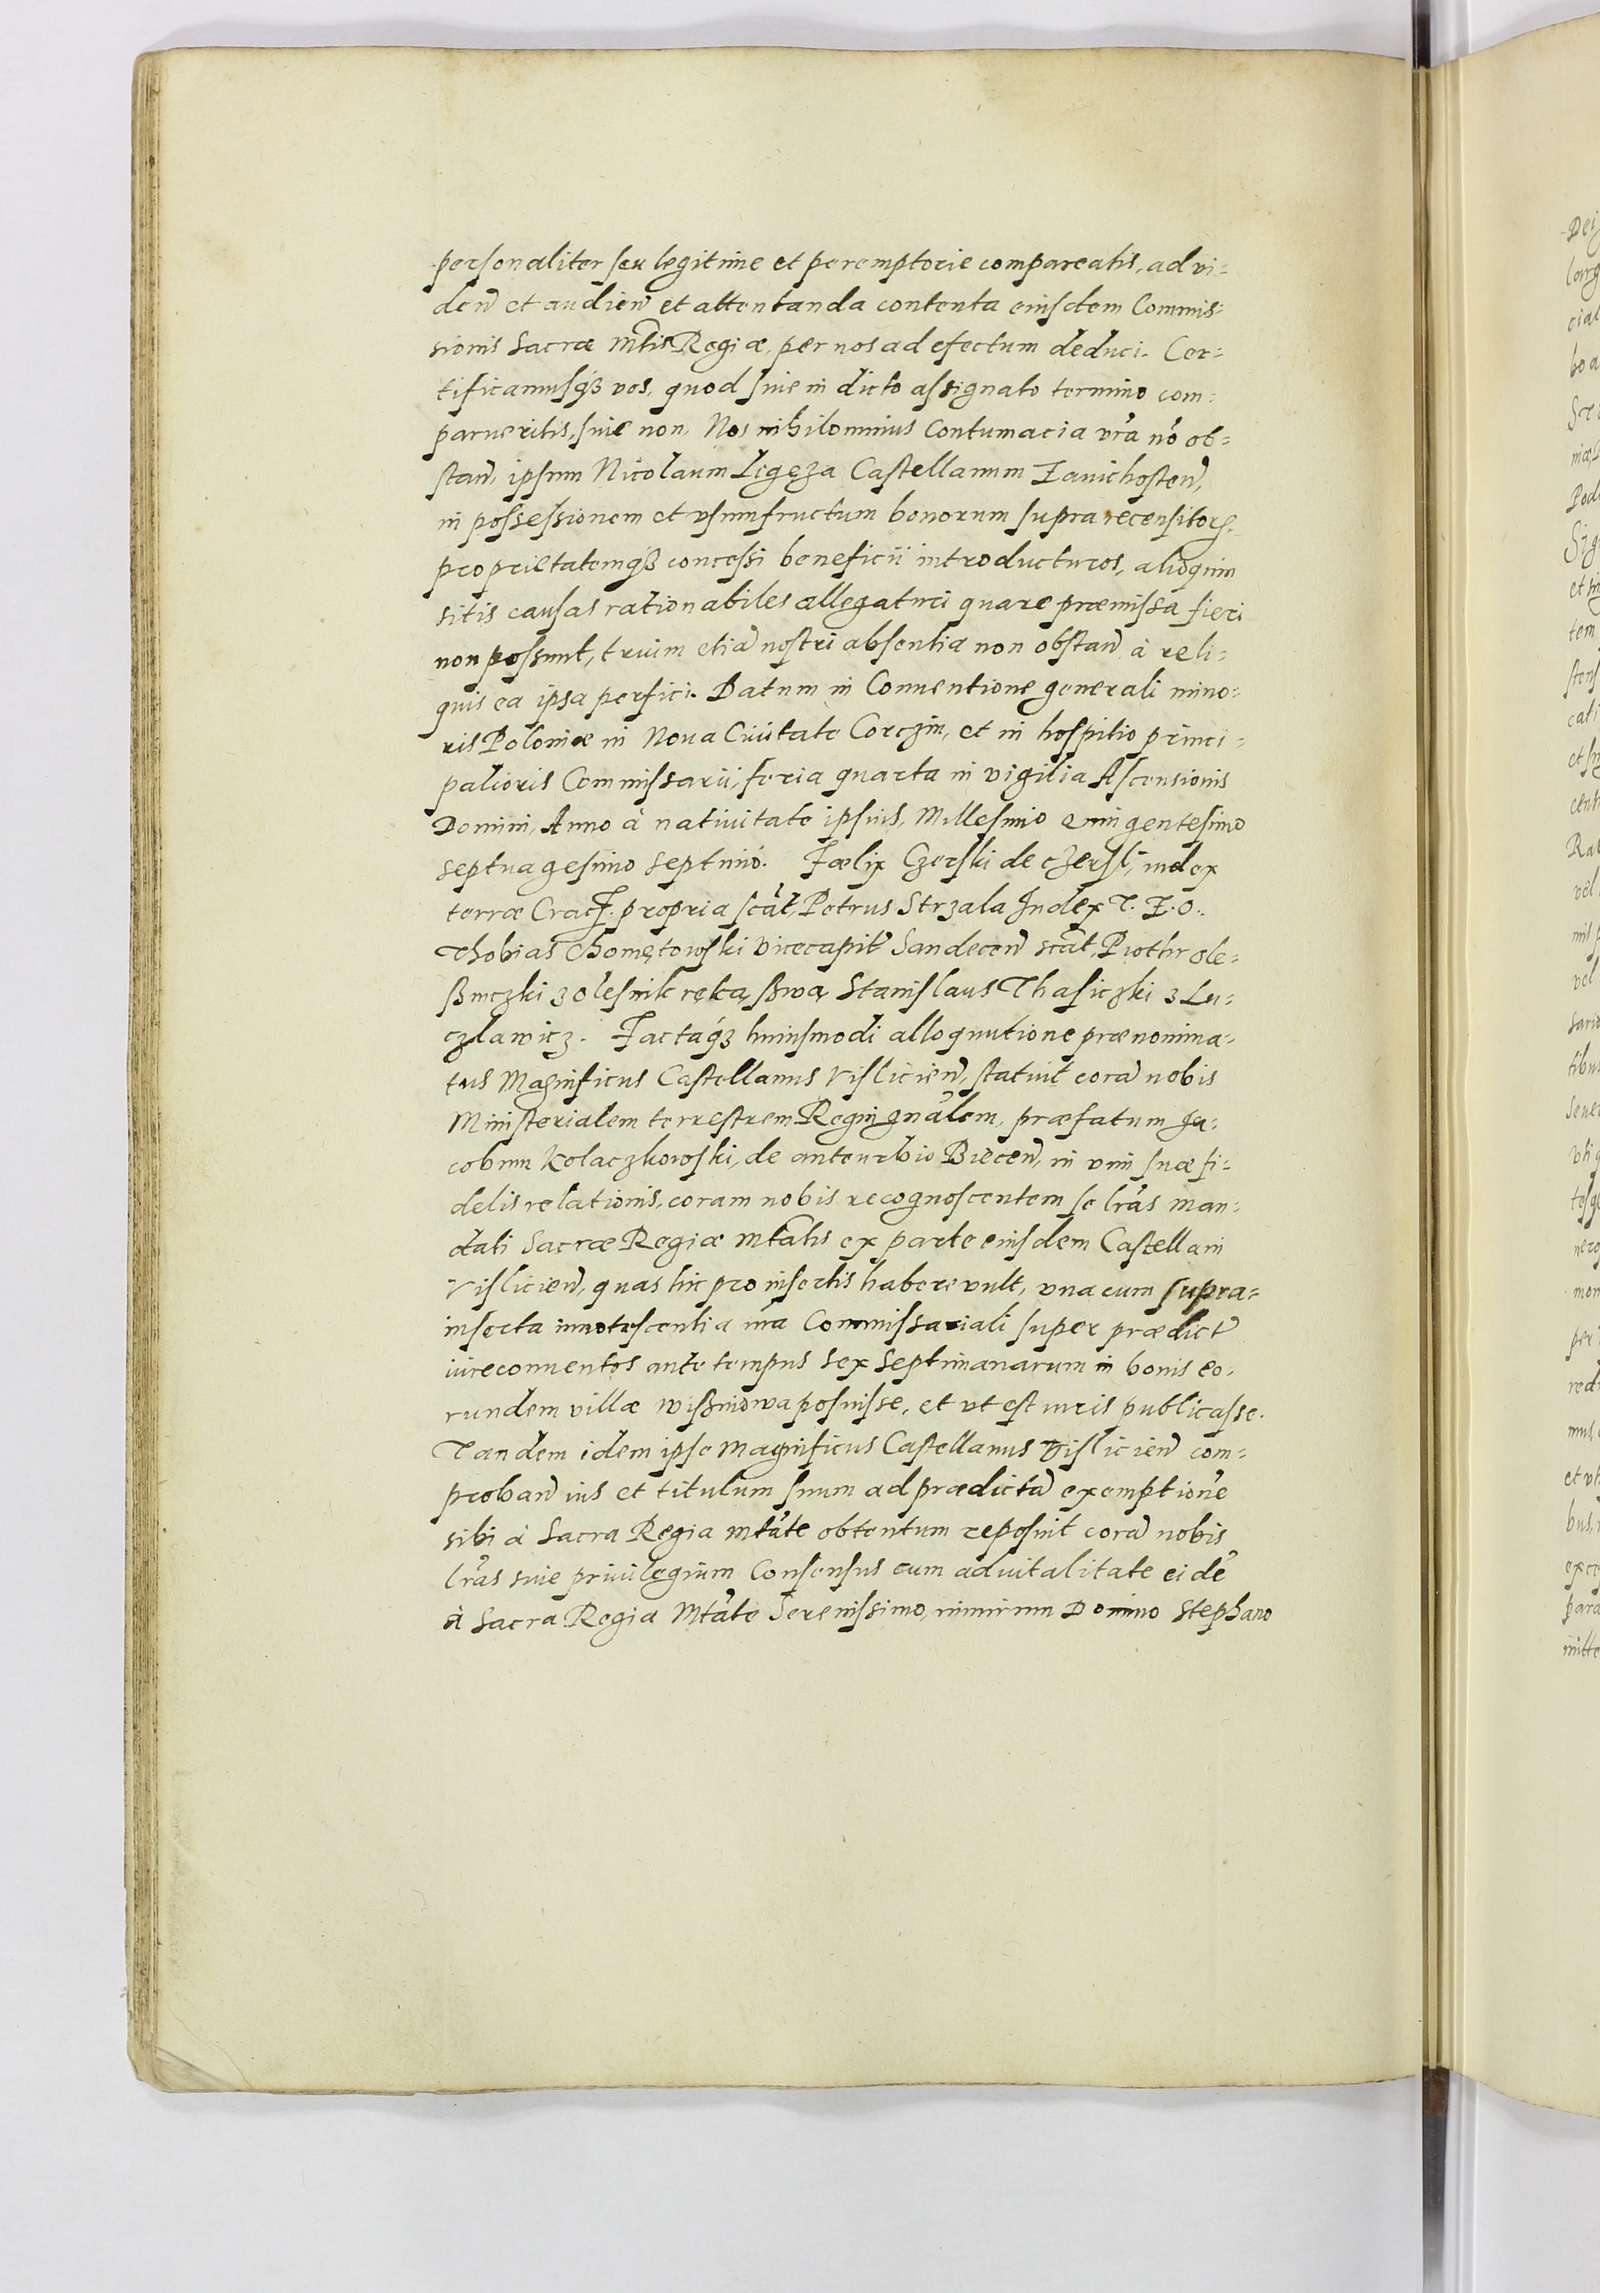 personaliter seu legitime et peremptorie compareatis, ad vi=
den̄ et audien̄ et attentanda contenta eiusdem Commis=
sionis Sacræ Mtis Regiæ, per nos ad efectum deduci. Cer=
tificamusqȝ vos, quod siue in dicto assignato termino com=
parueritis, siue non, Nos nihilominus Contumacia vr̃a nō ob=
stan̄, ipsum Nicolaum Ligęza Castellanum Zauichosten̄,
in possessionem et vsumfructum bonorum supra recensitorꝝ,
proprietatemqȝ concessi beneficii introducturos, alioquin
sitis causas rationabiles allegaturi quare præmissa fieri
non possunt, trium etiā nostri absentia non obstan̄ à reli=
quis ea ipsa perfici. Datum in Conuentione generali mino=
ris Poloniæ in Noua Ciuitate Corczin, et in hospitio princi=
palioris Commissarii, feria quarta in vigilia Ascensionis
Domini, Anno à natiuitate ipsius, Millesimo Quingentesimo
septuagesimo septimo. Fœlix Czerski de Czersk, iudex
terræ Cracẜ. propria scât, Petrus Strzala Judex T. Z. O.
Thobias Chomętowski Vicecapit̃ Sandecen̄ scât, Piothr Ole=
ßniczki z Olesnik ręką ßwą, Stanislaus Thasiczki z Lu=
czlawicz. Factaqȝ huiusmodi alloqutione prænomina=
tus Magnificus Castellanus Vislicien̄, statuit corā nobis
Ministerialem terrestrem Regni gnãlem, præfatum Ja=
cobum Kolaczkowski, de anteurbio Biecen̄, in vim suæ fi=
delis relationis, coram nobis recognoscentem se lr̃as man=
dati Sacræ Regiæ Mtatis ex parte eiusdem Castellani
Vislicien̄, quas hic pro insertis habere vult, vna cum supra=
inserta innotescentia nr̃a Commissariali super prædict̃
iureconuentos ante tempus sex septimanarum in bonis eo=
rundem villæ Wißniowa posuisse, et vt est iuris publicasse.
Tandem idem ipse Magnificus Castellanus Vislicien̄ com=
proban̄ ius et titulum suum ad prædictā exemptionē
sibi à Sacra Regia Mtãte obtentum reposuit corā nobis
lr̃as siue priuilegium Consensus cum aduitalitate eidē
à Sacra Regia Mtãte Serenissimo, nimirum Domino Stephano